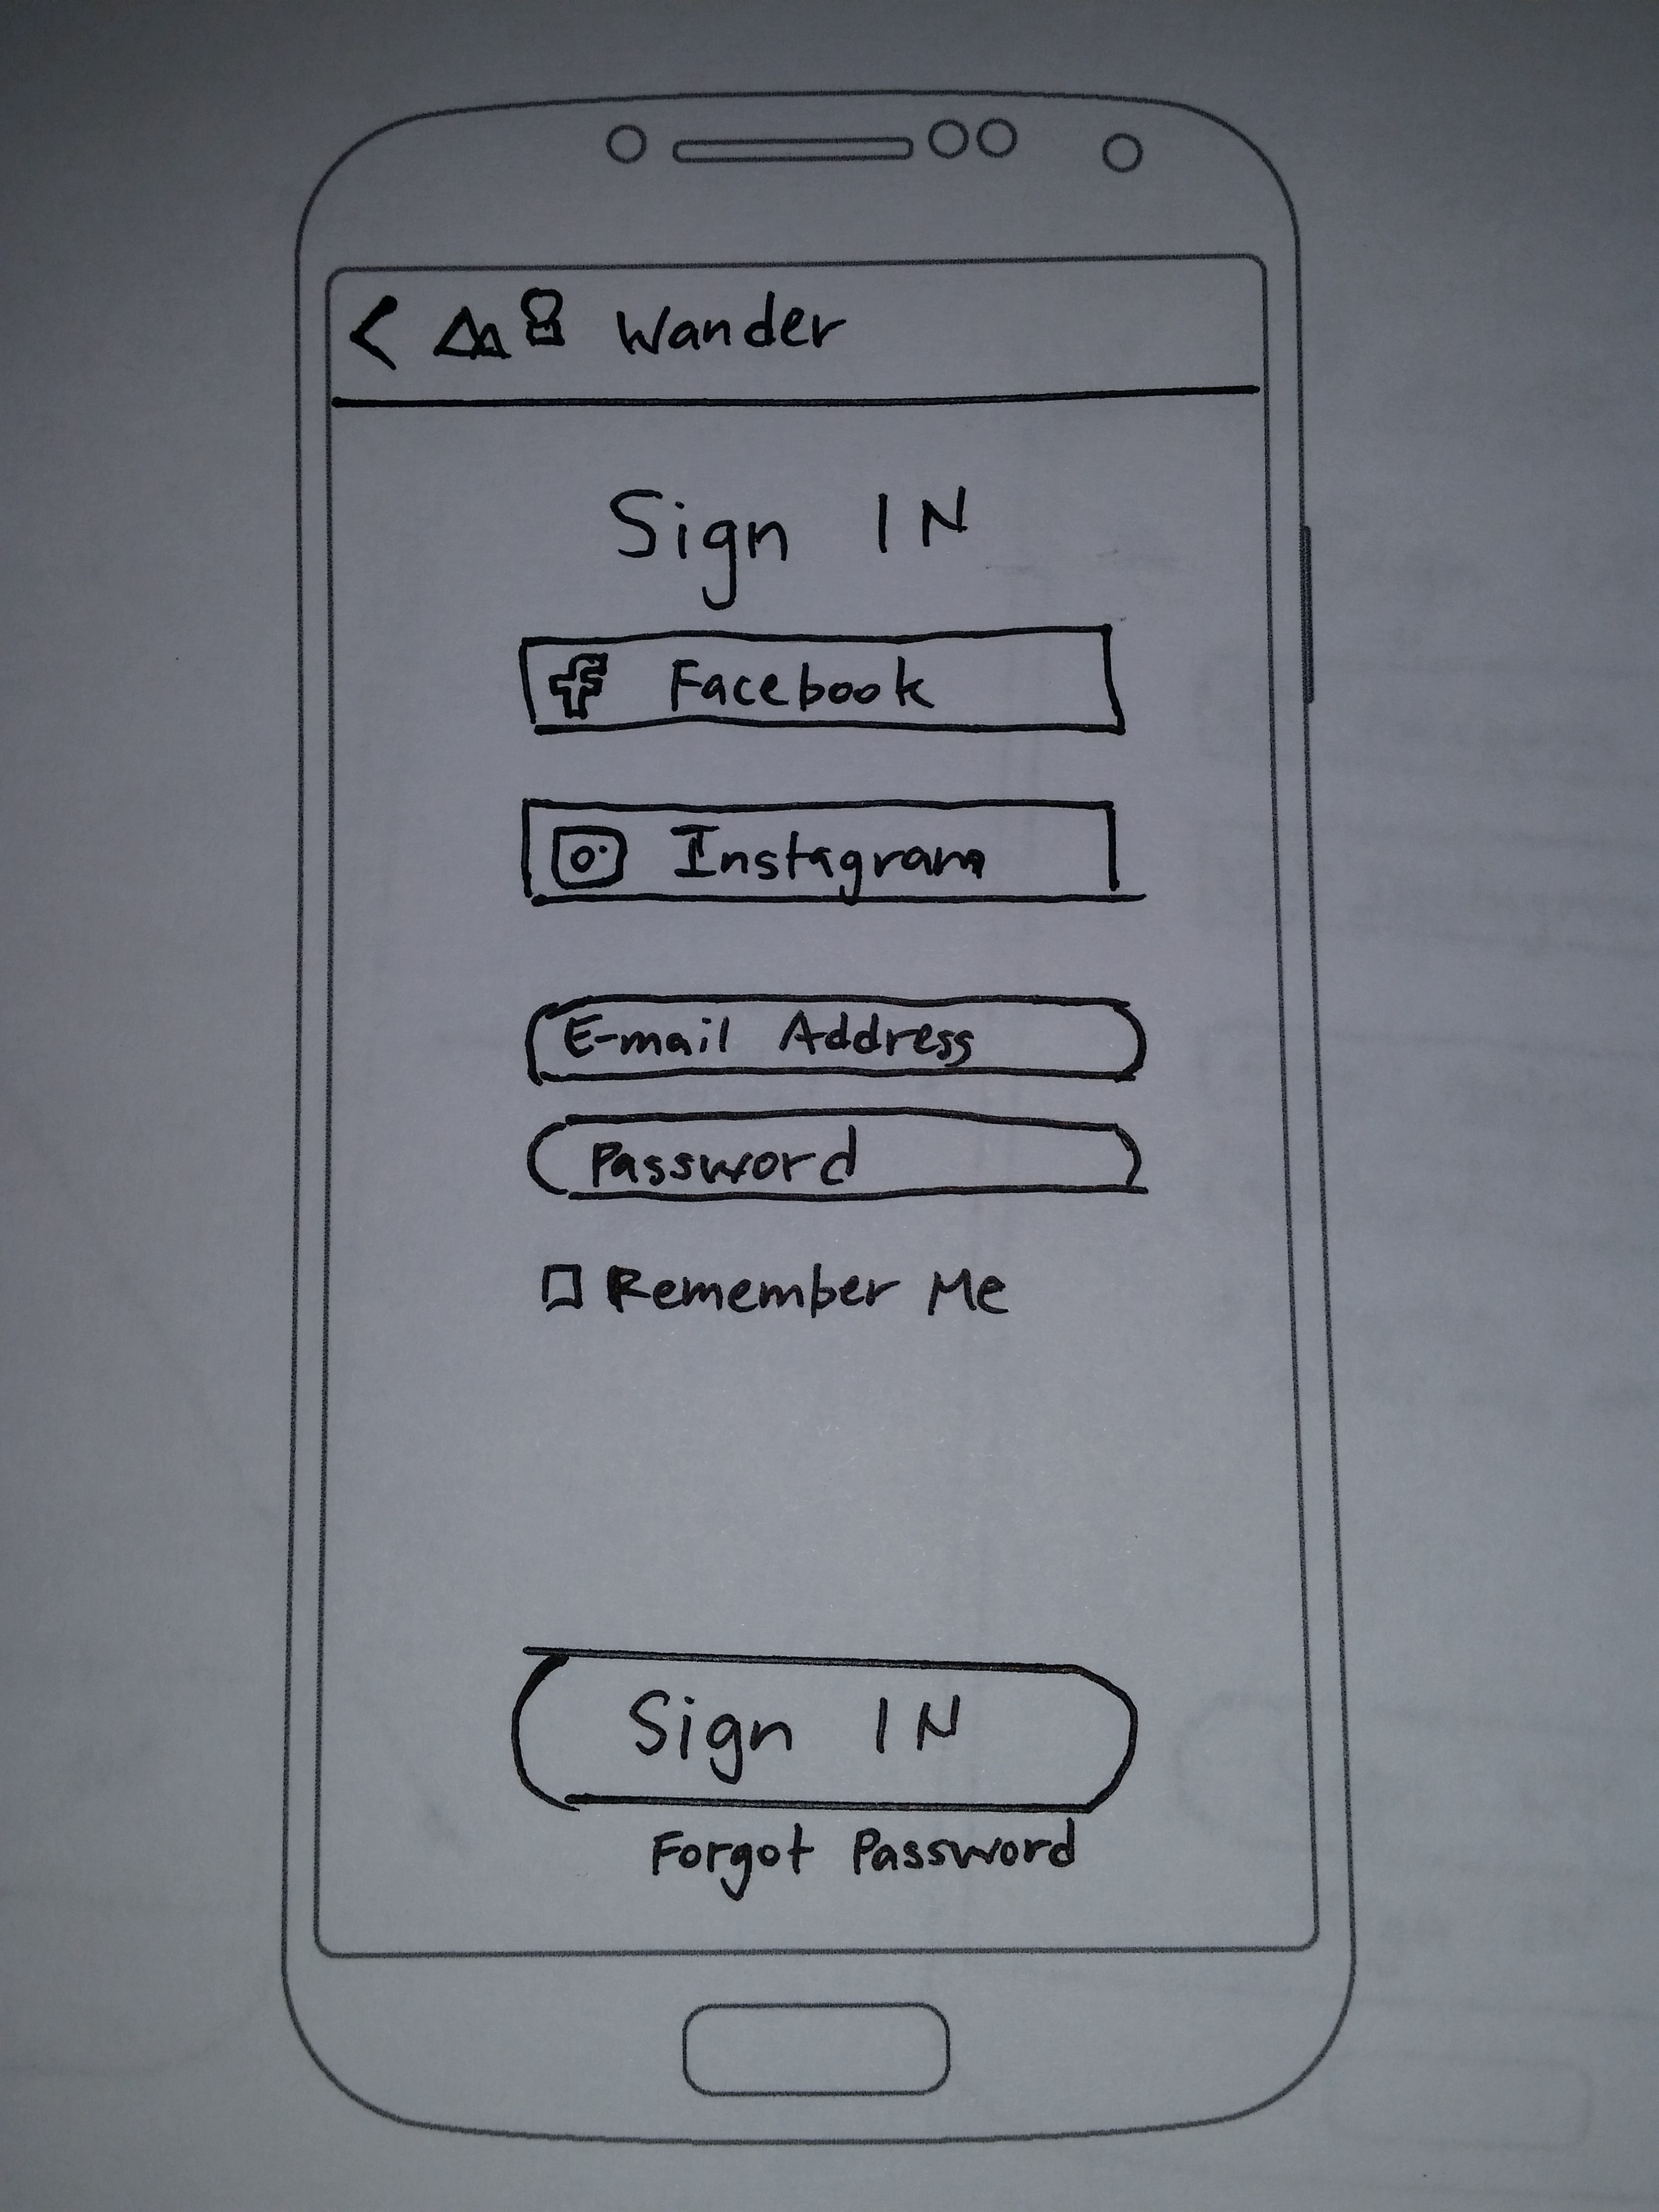 Wander
Sign IN
Facebook
Instagram
E-mail Address
Password
Remember Me
Sign IN
Forgot Password